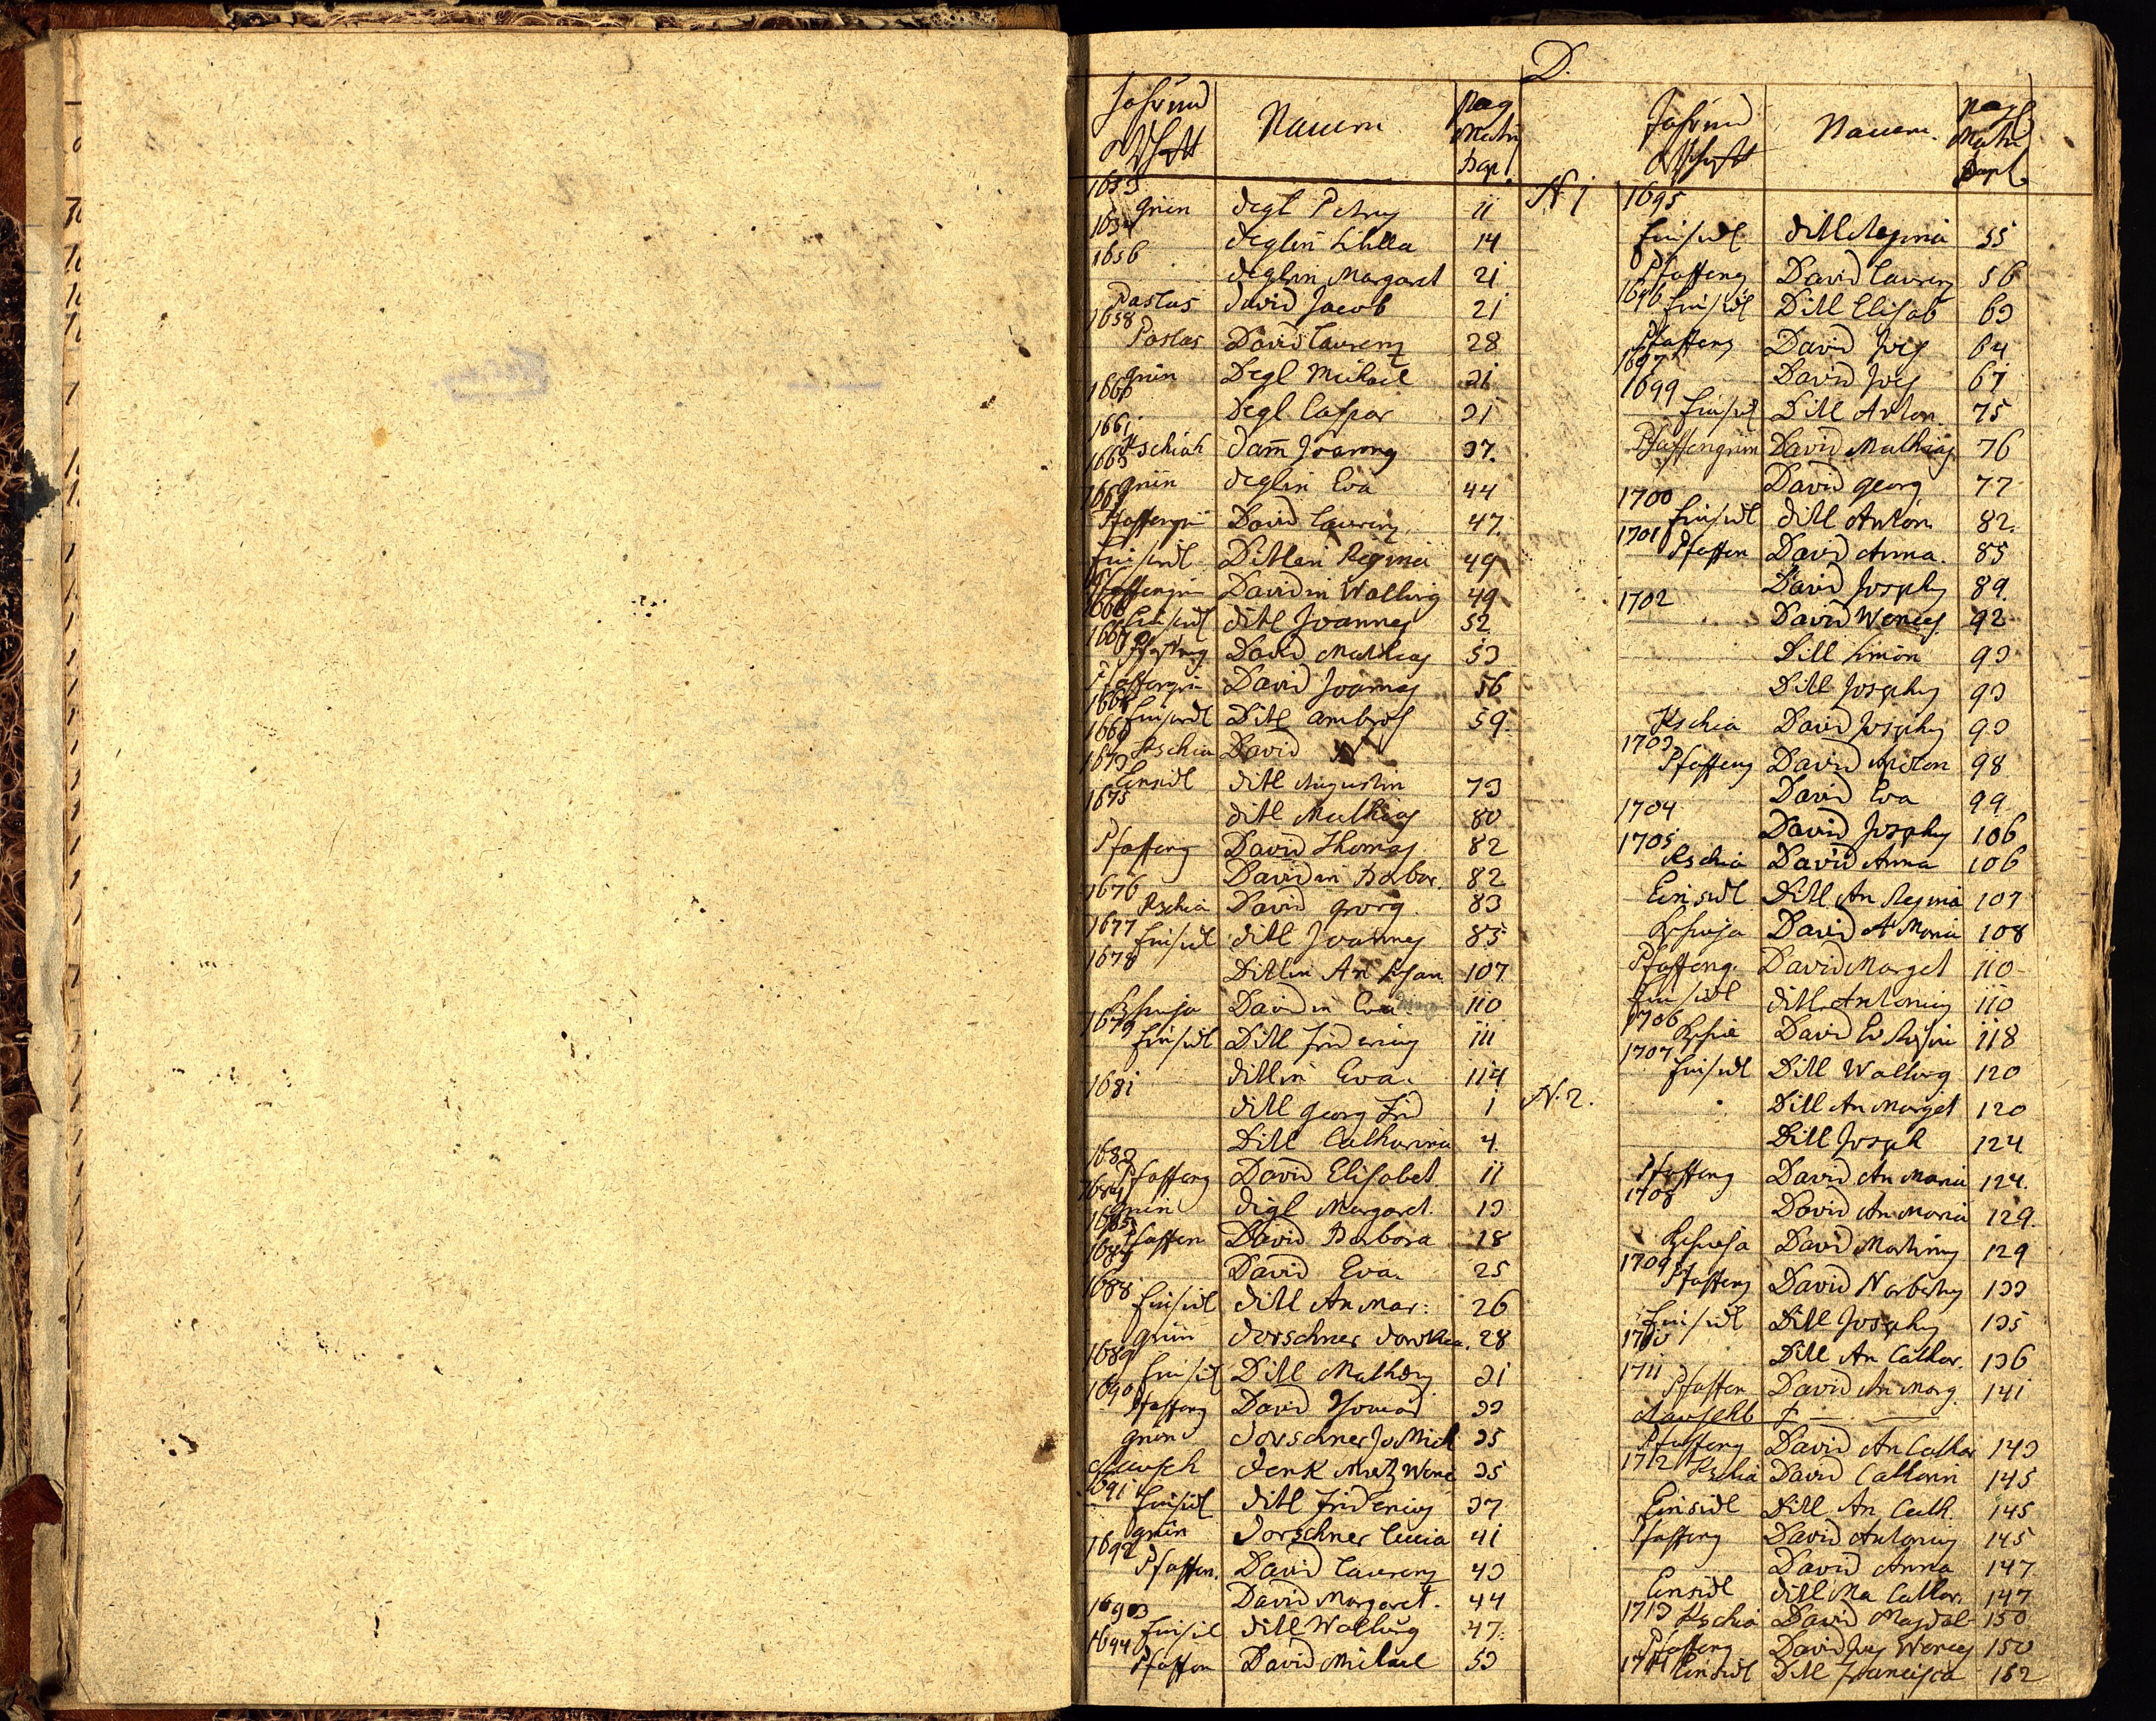 D.
Jahr und
Ortschaft
Namen
Pag
Matri
Bapt.
1653
Grün Degl Petrus 11
1654
Deglin Sibilla 14
1656
Deglin Margaret 21
Paslas David Jacob 21
1658
Poslas David Laurenz 28
Grün Degl Michael 31
1660
Degl Caspar 31
1661
Kschiah Dam̄ Joannes 37.
1663
Grün Deglin Eva 44
1664
Pfaffengrü David Laurenz 47.
Einsiedl Ditlin Regina 49
Pfaffengrü Davidin Walburg 49
1666
Einsidl Ditl Joannes 52
1667
Pfaffeng David Mathias 53
Pfaffengrü David Joannes 56
1668
Einsiedl Ditl Ambros 59.
1669
Kschia David
1673
Einsidl Ditl Augustin 73
1675
Ditl Mathias 80
Pfaffeng David Thomas 82
Davidin Barbar. 82
1676
Kschia David Georg 83
1677
Einsidl Ditl Joannes 85
1678
Ditlin An Susan 107
Kschija Davidin Eva 110
1679
Einsidl Ditl Fridericus 111
Ditlin Eva. 114
1681
Ditl Georg Frid 1 N. 2.
Ditl Catharina 4
1683
Pfaffeng David Elisabet 11
1684
Grün Digl Margaret. 13
1685
Pfaffen David Barbora 18
David Eva. 25
1688
Einsidl Ditl An Mar: 26
Grün Dorschner Dorothea. 28
1689
Einsidl Ditl Matheus 31
1690
Pfaffeng David Thomas 33
Grün Dorschner Jo Mich 35
Rausch Denk Math Wenc 35
1691
Einsidl Ditl Fridericus 37
Grün Dorschner Lucia 41
1692
Pfaffen. David Laurenz 43
David Margaret. 44
1693
Einsidl Ditl Walburg 47.
1694
Pfaffen David Michael 53
Jahr und
Ortschaft
Namen.
Pag
Matri
Bapt.
N. 1
1695
Einsidl Ditl Regina 55
Pfaffeng David Laurenz 56
1696
Einsidl Ditl Elisab 63
Pfaffeng David Jos 64
1697
David Jos 67
1699
Einsidl Ditl Anton. 75
Pfaffengrün David Mathias 76
David Georg 77
1700
Einsidl Ditl Anton 82.
1701
Pfaffen David Anna. 85
David Josephus 89.
1702
David Wences. 92
Ditl Simon 93
Ditl Josephus 93
Kschia David Josephus 93
1703
Pfaffeng David Anton 98
David Eva 99
1704
David Josephus 106
1705
Kschia David Anna 106
Einsidl Ditl An Regina 107
Kschija David A Maria 108
Pfaffeng. David Marget 110
Einsidl Ditl Antonius 110
1706
Kschia David Ev Rosin 118
1707
Einsidl Ditl Walburg 120
Ditl An Marget 120
Ditl Joseph 124
Pfaffeng David An Maria 124.
1708
David An Maria 129.
Kschija David Martinus 129
1709
Pfaffeng David Norbertus 133
Einsidl Ditl Josephus 135
1710
Ditl An Cathar. 136
1711
Pfaffen David An Marg. 141
Rauschb
Pfaffeng David An Cathar 143
1712
Kschia David Catharin 145
Einsidl Ditl An Cath. 145
Pfaffeng David Antonius 145
David Anna 147
Einsidl Ditl Ma Cathar. 147
1713
Kschia David Magdal 150
Pfaffeng David Jos Wences 150
1714
Einsidl Ditl Francisca 152